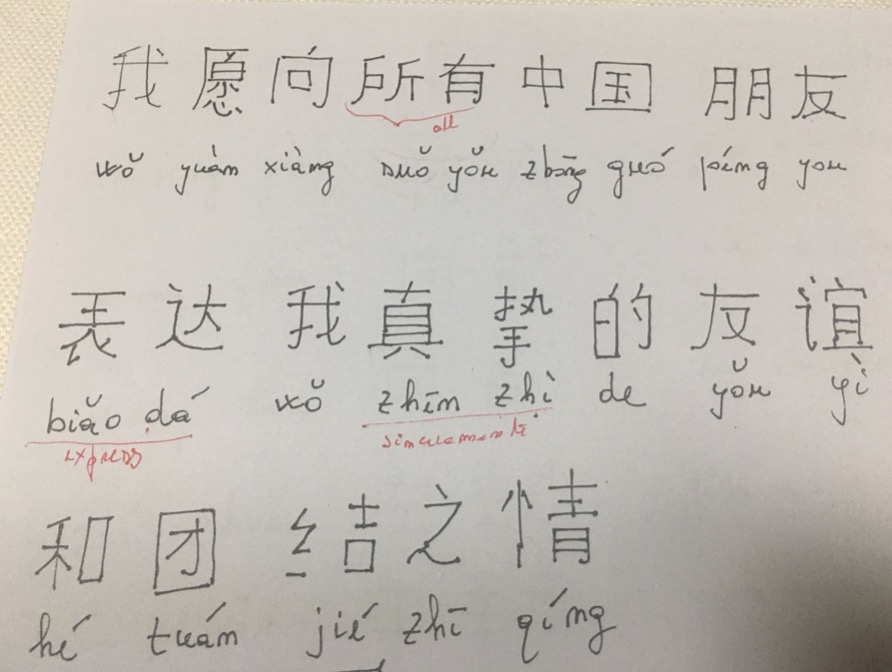 我愿向所有中国朋友
all
wǒ yuán xiàng suǒ yǒu zhōng guó péng you
表达我真挚的友谊
biǎo dá wǒ zhēn zhì de yǒu yì
express
和团结之情
hé tuán jié zhī qíng